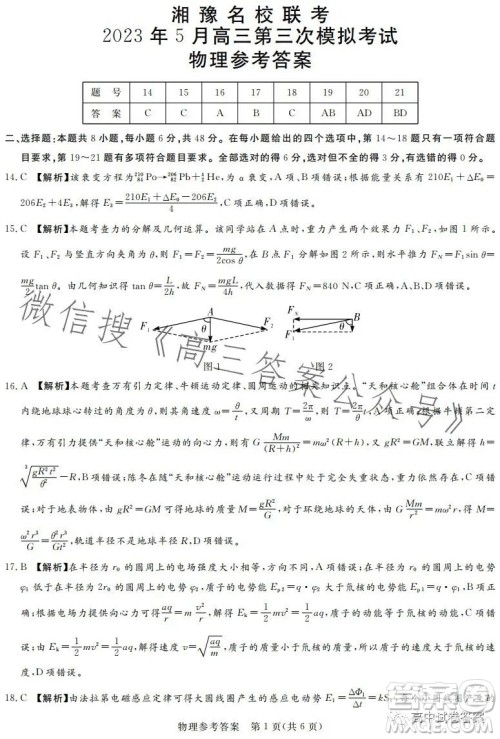 湘豫名校联考
2023年5月高三第三次模拟考试
物理参考答案
题号 14 15 16 17 18 19 20 21
答案 C C A B C AB AD BD
二、选择题：本题共8小题，每小题6分，共48分。在每小题给出的四个选项中，第14～18题只有一项符合题
目要求，第19～21题有多项符合题目要求。全部选对的得6分，选对但不全的得3分，有选错的得0分。
14.C 【解析】该衰变方程为²¹⁰₈₄Po→²⁰⁶₈₂Pb+⁴₂He，为α衰变，A项、B项错误；根据能量关系有210E₁+ΔE₀=
206E₂+4E₃，E₃=(210E₁+ΔE₀-206E₂)/4，C项正确，D项错误。
15.C 【解析】本题考查力的分解及几何运算。该同学站在A点时，重力产生两个效果力F₁、F₂，如图1所示，
设F₁、F₂与竖直方向夹角为θ，则F₁=F₂=mg/(2cos θ)，在B点分解F₁如图2所示，则水平推力为F_N=F₁sin θ=
mg/2 tan θ。由几何知识得tan θ=L/(2h)，故F_N=mgL/(4h)，代入数据得F_N=840 N，C项正确，A、B、D项错误。
F₁ A F₂ θ mg
图1
F_N B θ F₁
图2
16.A 【解析】本题考查万有引力定律、牛顿运动定律、圆周运动的相关知识点。“天和核心舱”的运行在时间t
内绕地球球心转过的角度为θ，则角速度ω=θ/t，又周期T=2π/ω，则T=2πt/θ，A项正确；根据牛顿第二定
律，万有引力提供“天和核心舱”运动的向心力，则有G Mm/(R+h)²=mω²(R+h)，又gR²=GM，联立解得h=
∛(gR²t²/θ²)-R，B项错误；陈冬在随“天和核心舱”运动运行过程中处于完全失重状态，重力依然存在，C项错
误；对于地表物体，由gR²=GM可得地球质量为M=gR²/G，对于环绕地球的天体，由G Mm/r²=mω²r得M=
ω²r³/G=θ²r³/(Gt²)，轨道半径不是地球半径R，D项错误。
17.B 【解析】在半径为r₀的圆周上的电场强度大小相等，方向不同，A项错误；在半径为r₀的圆周上的电势
φ₂低于在半径为2r₀的圆周上的电势φ₁，质子的电势能E_p1=q·φ₁大于氘核的电势能E_p2=q·φ₂，B项正
确；根据电场力提供向心力可得aq/r=m v²/r，解得动能E_k=½mv²=½aq，质子的动能等于氘核的动能，C项
错误；由E_k=½mv²=½aq，v=√(aq/m)，质子的质量小于氘核的质量，所以质子的速度大于氘核的速度，D项错
误。
18.C 【解析】由法拉第电磁感应定律可得大圆线圈产生的感应电动势E₁=ΔΦ₁/Δt=
物理参考答案 第1页（共6页）
微信搜《高三答案公众号》
高中试卷答案